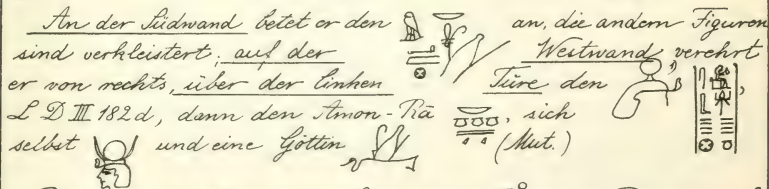 An der Südwand betet er den an, die andern Figuren
sind verkleistert; auf der Westwand verehrt
er von rechts, über der linken Türe den
L D III 182 d, dann den Amon-Rā, sich
selbst und eine Göttin (Mut.)